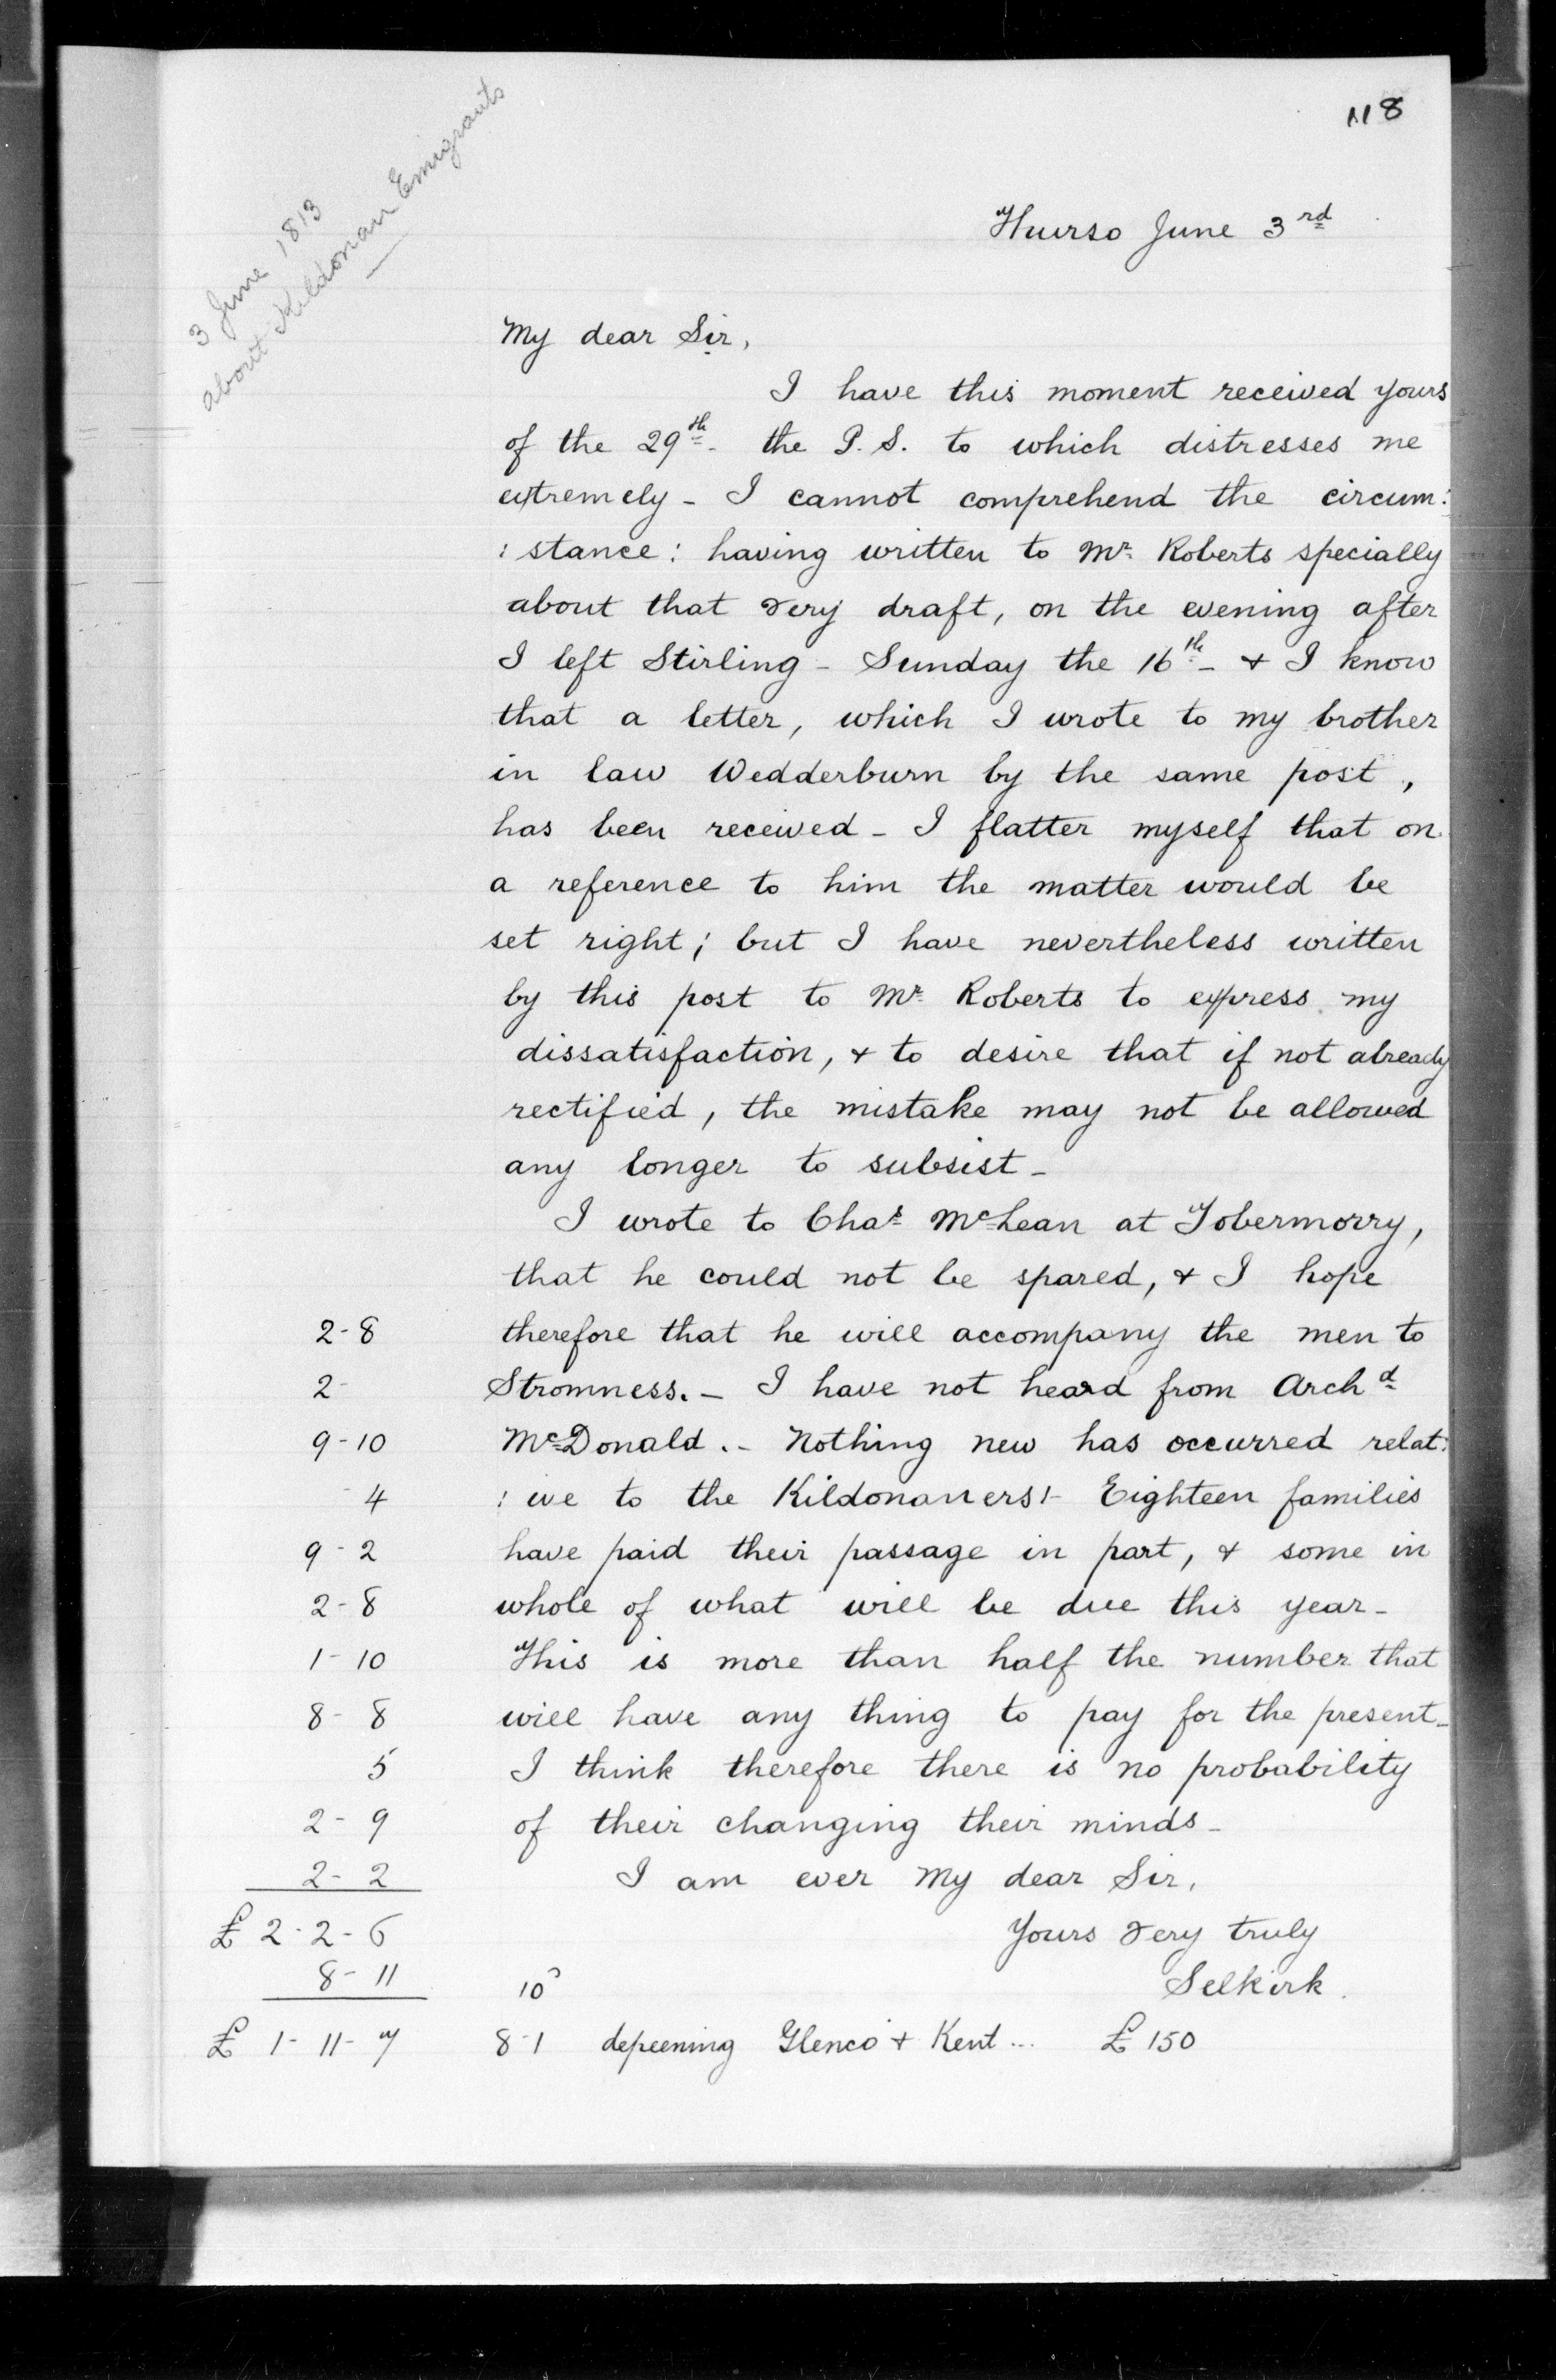 118
3 June 1813
about Kildonan Emigrants
Thurso June 3rd
My dear Sir,
I have this moment received yours
of the 29th - the P.S. to which distresses me
extremely - I cannot comprehend the circum:
: stance : having written to Mr Roberts specially
about that very draft, on the evening after
I left Stirling - Sunday the 16th - & I know
that a letter, which I wrote to my brother
in law Wedderburn by the same post,
has been received - I flatter myself that on
a reference to him the matter would be
set right; but I have nevertheless written
by this post to Mr Roberts to express my
dissatisfaction, & to desire that if not already
rectified, the mistake may not be allowed
any longer to subsist -
I wrote to Chas McLean at Tobermorry,
that he could not be spared, & I hope
2-8 therefore that he will accompany the men to
2- Stromness. - I have not heard from Archd
9-10 McDonald. - Nothing new has occurred relat:
4 : ive to the Kildonaners! - Eighteen families
9-2 have paid their passage in part, & some in
2-8 whole of what will be due this year -
1-10 This is more than half the number that
8-8 will have any thing to pay for the present -
5 I think therefore there is no probability
2-9 of their changing their minds -
2-2 I am ever My dear Sir,
£ 2-2-6 Yours very truly
8-11 10 Selkirk.
£ 1-11-7 8-1 depeening Glenco & Kent ... £ 150